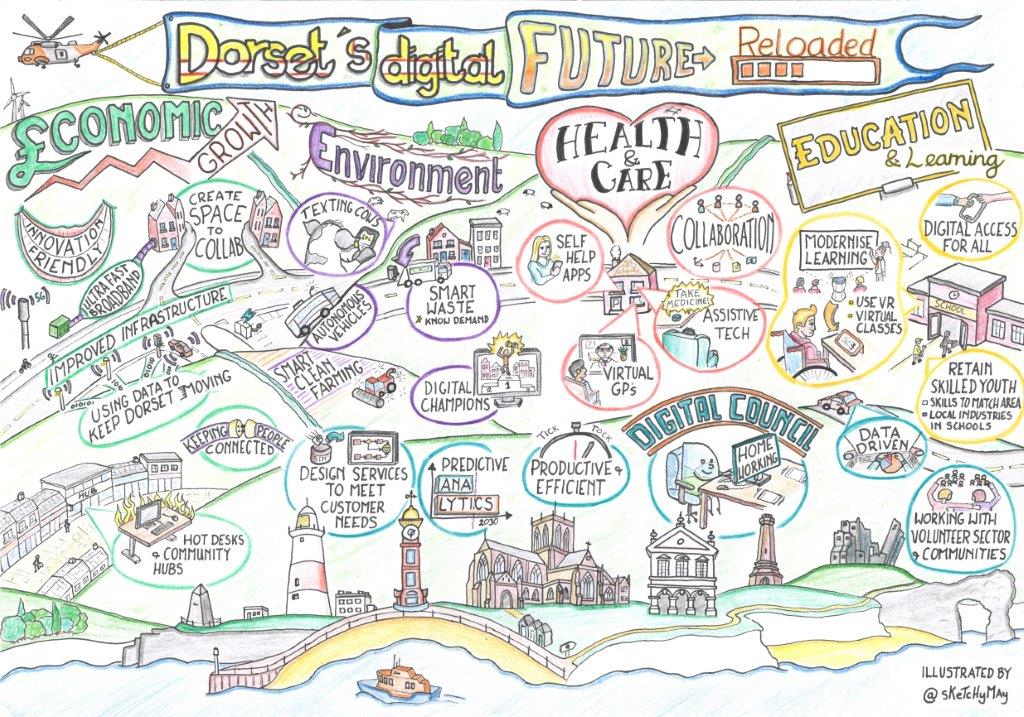 Dorset's digital FUTURE → Reloaded
£CONOMIC
GROWTH
INNOVATION
FRIENDLY
5G
ULTRA FAST
BROADBAND
CREATE
SPACE
TO
COLLAB
IMPROVED INFRASTRUCTURE
USING DATA TO
KEEP DORSET MOVING
KEEPING PEOPLE
CONNECTED
HUB
HOT DESKS
& COMMUNITY
HUBS
Environment
TEXTING COWS
AUTONOMOUS
VEHICLES
SMART
WASTE
KNOW DEMAND
SMART
CLEAN
FARMING
DIGITAL
CHAMPIONS
2 1 3
HEALTH
&
CARE
SELF
HELP
APPS
COLLABORATION
TAKE
MEDICINE!
ASSISTIVE
TECH
VIRTUAL
GPs
EDUCATION
& Learning
DIGITAL ACCESS
FOR ALL
MODERNISE
LEARNING
USE VR
VIRTUAL
CLASSES
SCHOOL
RETAIN
SKILLED YOUTH
SKILLS TO MATCH AREA
LOCAL INDUSTRIES
IN SCHOOLS
DIGITAL COUNCIL
DESIGN SERVICES
TO MEET
CUSTOMER
NEEDS
PREDICTIVE
ANA
LYTICS
2030
TICK TOCK
PRODUCTIVE &
EFFICIENT
HOME
WORKING
DATA
DRIVEN
WORKING WITH
VOLUNTEER SECTOR
& COMMUNITIES
ILLUSTRATED BY
@sketchyMAy